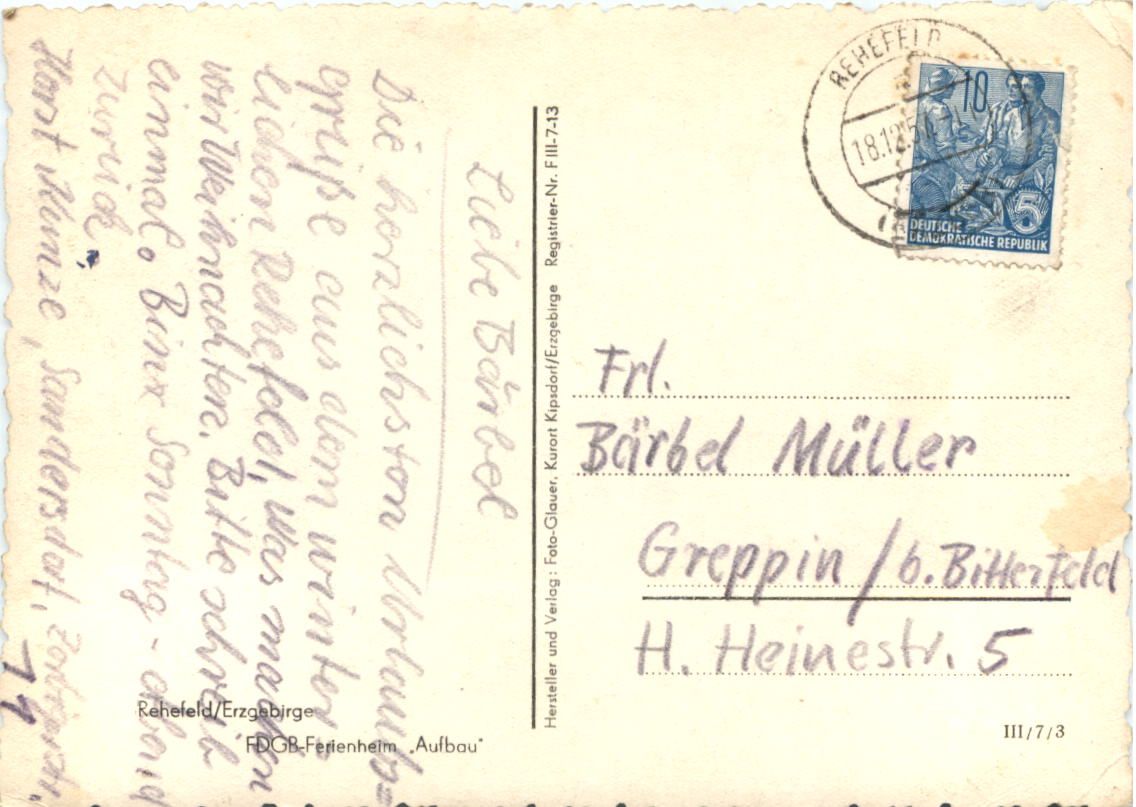 Liebe Bärbel
Die herzlichsten Urlaubs=
grüße aus dem winter-
lichen Rehefeld, was machen
wir Weihnachten. Bitte schreib
einmal. Bin Sonntag - abend
zurück.
Horst Kunze, Sandersdorf,
11
Rehefeld/Erzgebirge
FDGB-Ferienheim „Aufbau"
Hersteller und Verlag: Foto-Glauer, Kurort Kipsdorf/Erzgebirge Registrier-Nr. F III-7-13
REHEFELD
18.12.54
10
5
DEUTSCHE
DEMOKRATISCHE REPUBLIK
Frl.
Bärbel Müller
Greppin / b. Bitterfeld
H. Heinestr. 5
III/7/3